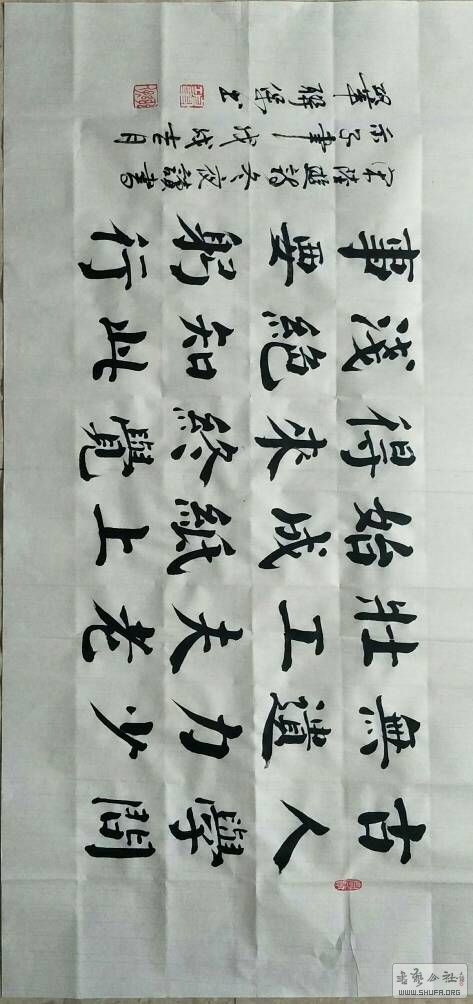 古人學問
無遺力少
壯工夫老
始成紙上
得來終覺
淺絕知此
事要躬行
宋陸遊詩冬夜讀書
示子聿戊戌吉月
聯書
书艺公社
WWW.SHUFA.ORG